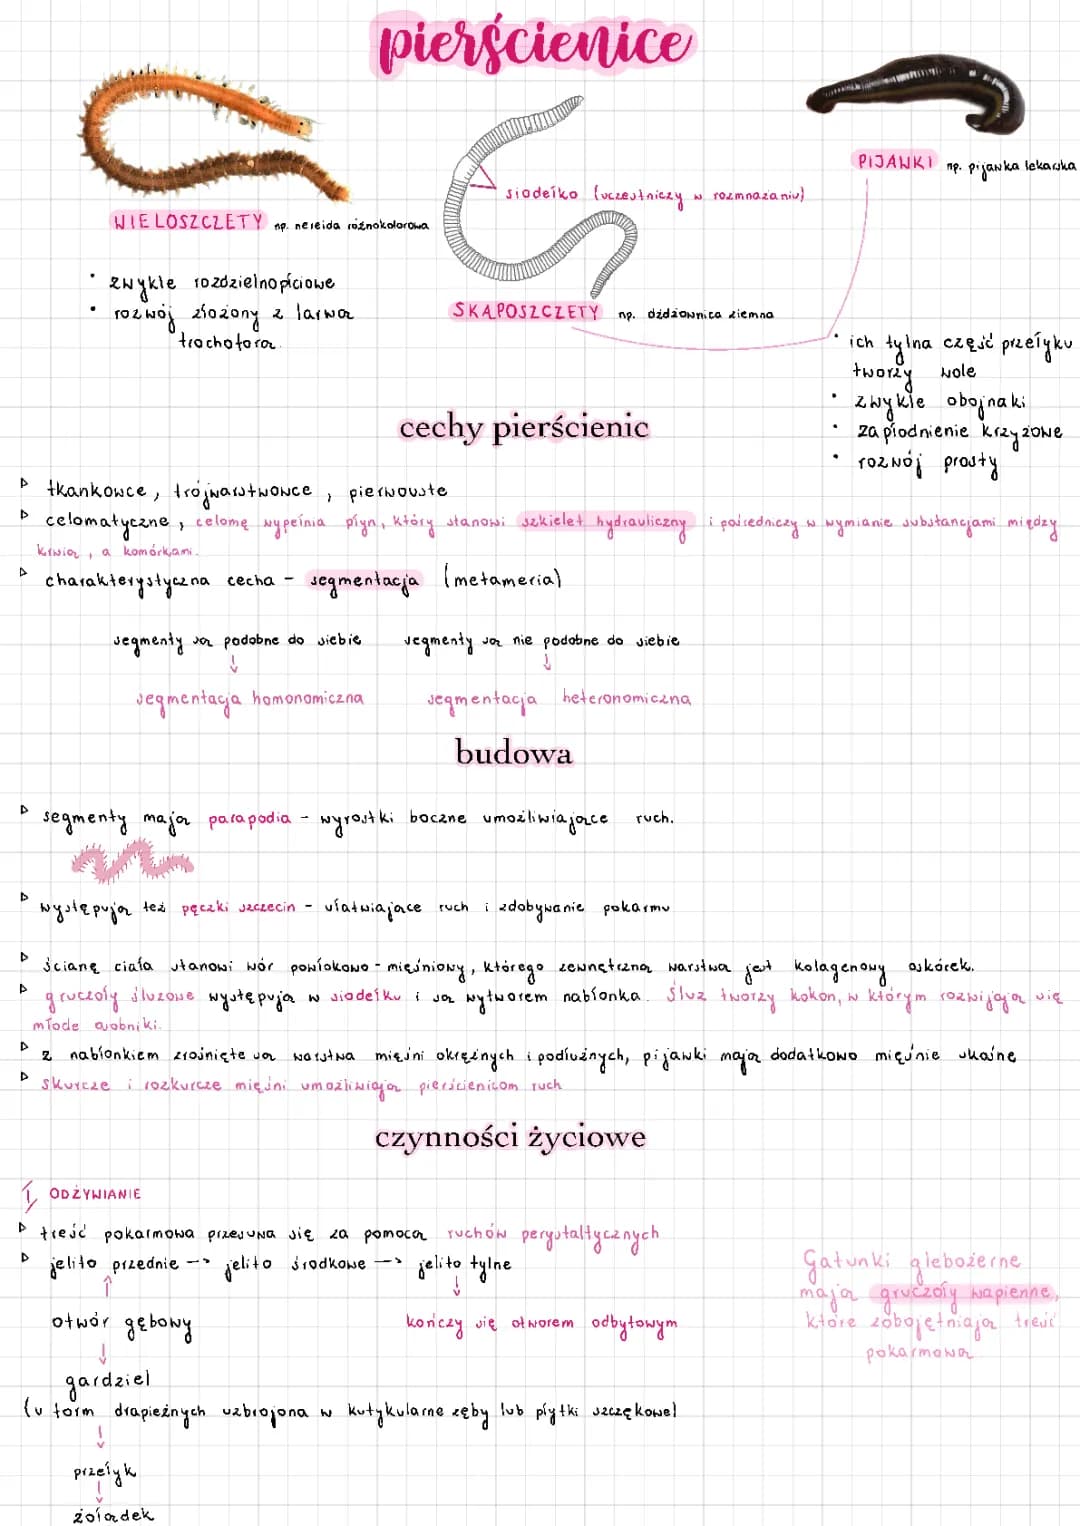 pierścienice
PIJAWKI np. pijawka lekarska
siodełko (uczestniczy w rozmnażaniu)
WIELOSZCZETY np. nereida różnokolorowa
zwykle rozdzielnopłciowe
rozwój złożony z larwą
trochoforą
SKĄPOSZCZETY np. dżdżownica ziemna
ich tylna część przełyku
tworzy wole
zwykle obojnaki
zapłodnienie krzyżowe
rozwój prosty
cechy pierścienic
tkankowce, trójwarstwowce, pierwouste
celomatyczne, celomę wypełnia płyn, który stanowi szkielet hydrauliczny i pośredniczy w wymianie substancjami między
krwią, a komórkami.
charakterystyczna cecha - segmentacja (metameria)
segmenty są podobne do siebie segmenty są nie podobne do siebie
segmentacja homonomiczna segmentacja heteronomiczna
budowa
segmenty mają parapodia - wyrostki boczne umożliwiające ruch.
występują też pęczki szczecin - ułatwiające ruch i zdobywanie pokarmu
ścianę ciała stanowi wór powłokowo - mięśniowy, którego zewnętrzną warstwą jest kolagenowy oskórek.
gruczoły śluzowe występują w siodełku i są wytworem nabłonka. Śluz tworzy kokon, w którym rozwijają się
młode osobniki.
z nabłonkiem zrośnięte są warstwa mięśni okrężnych i podłużnych, pijawki mają dodatkowo mięśnie skośne
skurcze i rozkurcze mięśni umożliwiają pierścienicom ruch
czynności życiowe
1, ODŻYWIANIE
treść pokarmowa przesuwa się za pomocą ruchów perystaltycznych
jelito przednie --> jelito środkowe --> jelito tylne
otwór gębowy kończy się otworem odbytowym
Gatunki glebożerne
mają gruczoły wapienne,
które zobojętniają treść
pokarmową
gardziel
(u form drapieżnych uzbrojona w kutykularne zęby lub płytki szczękowe)
przełyk
żołądek